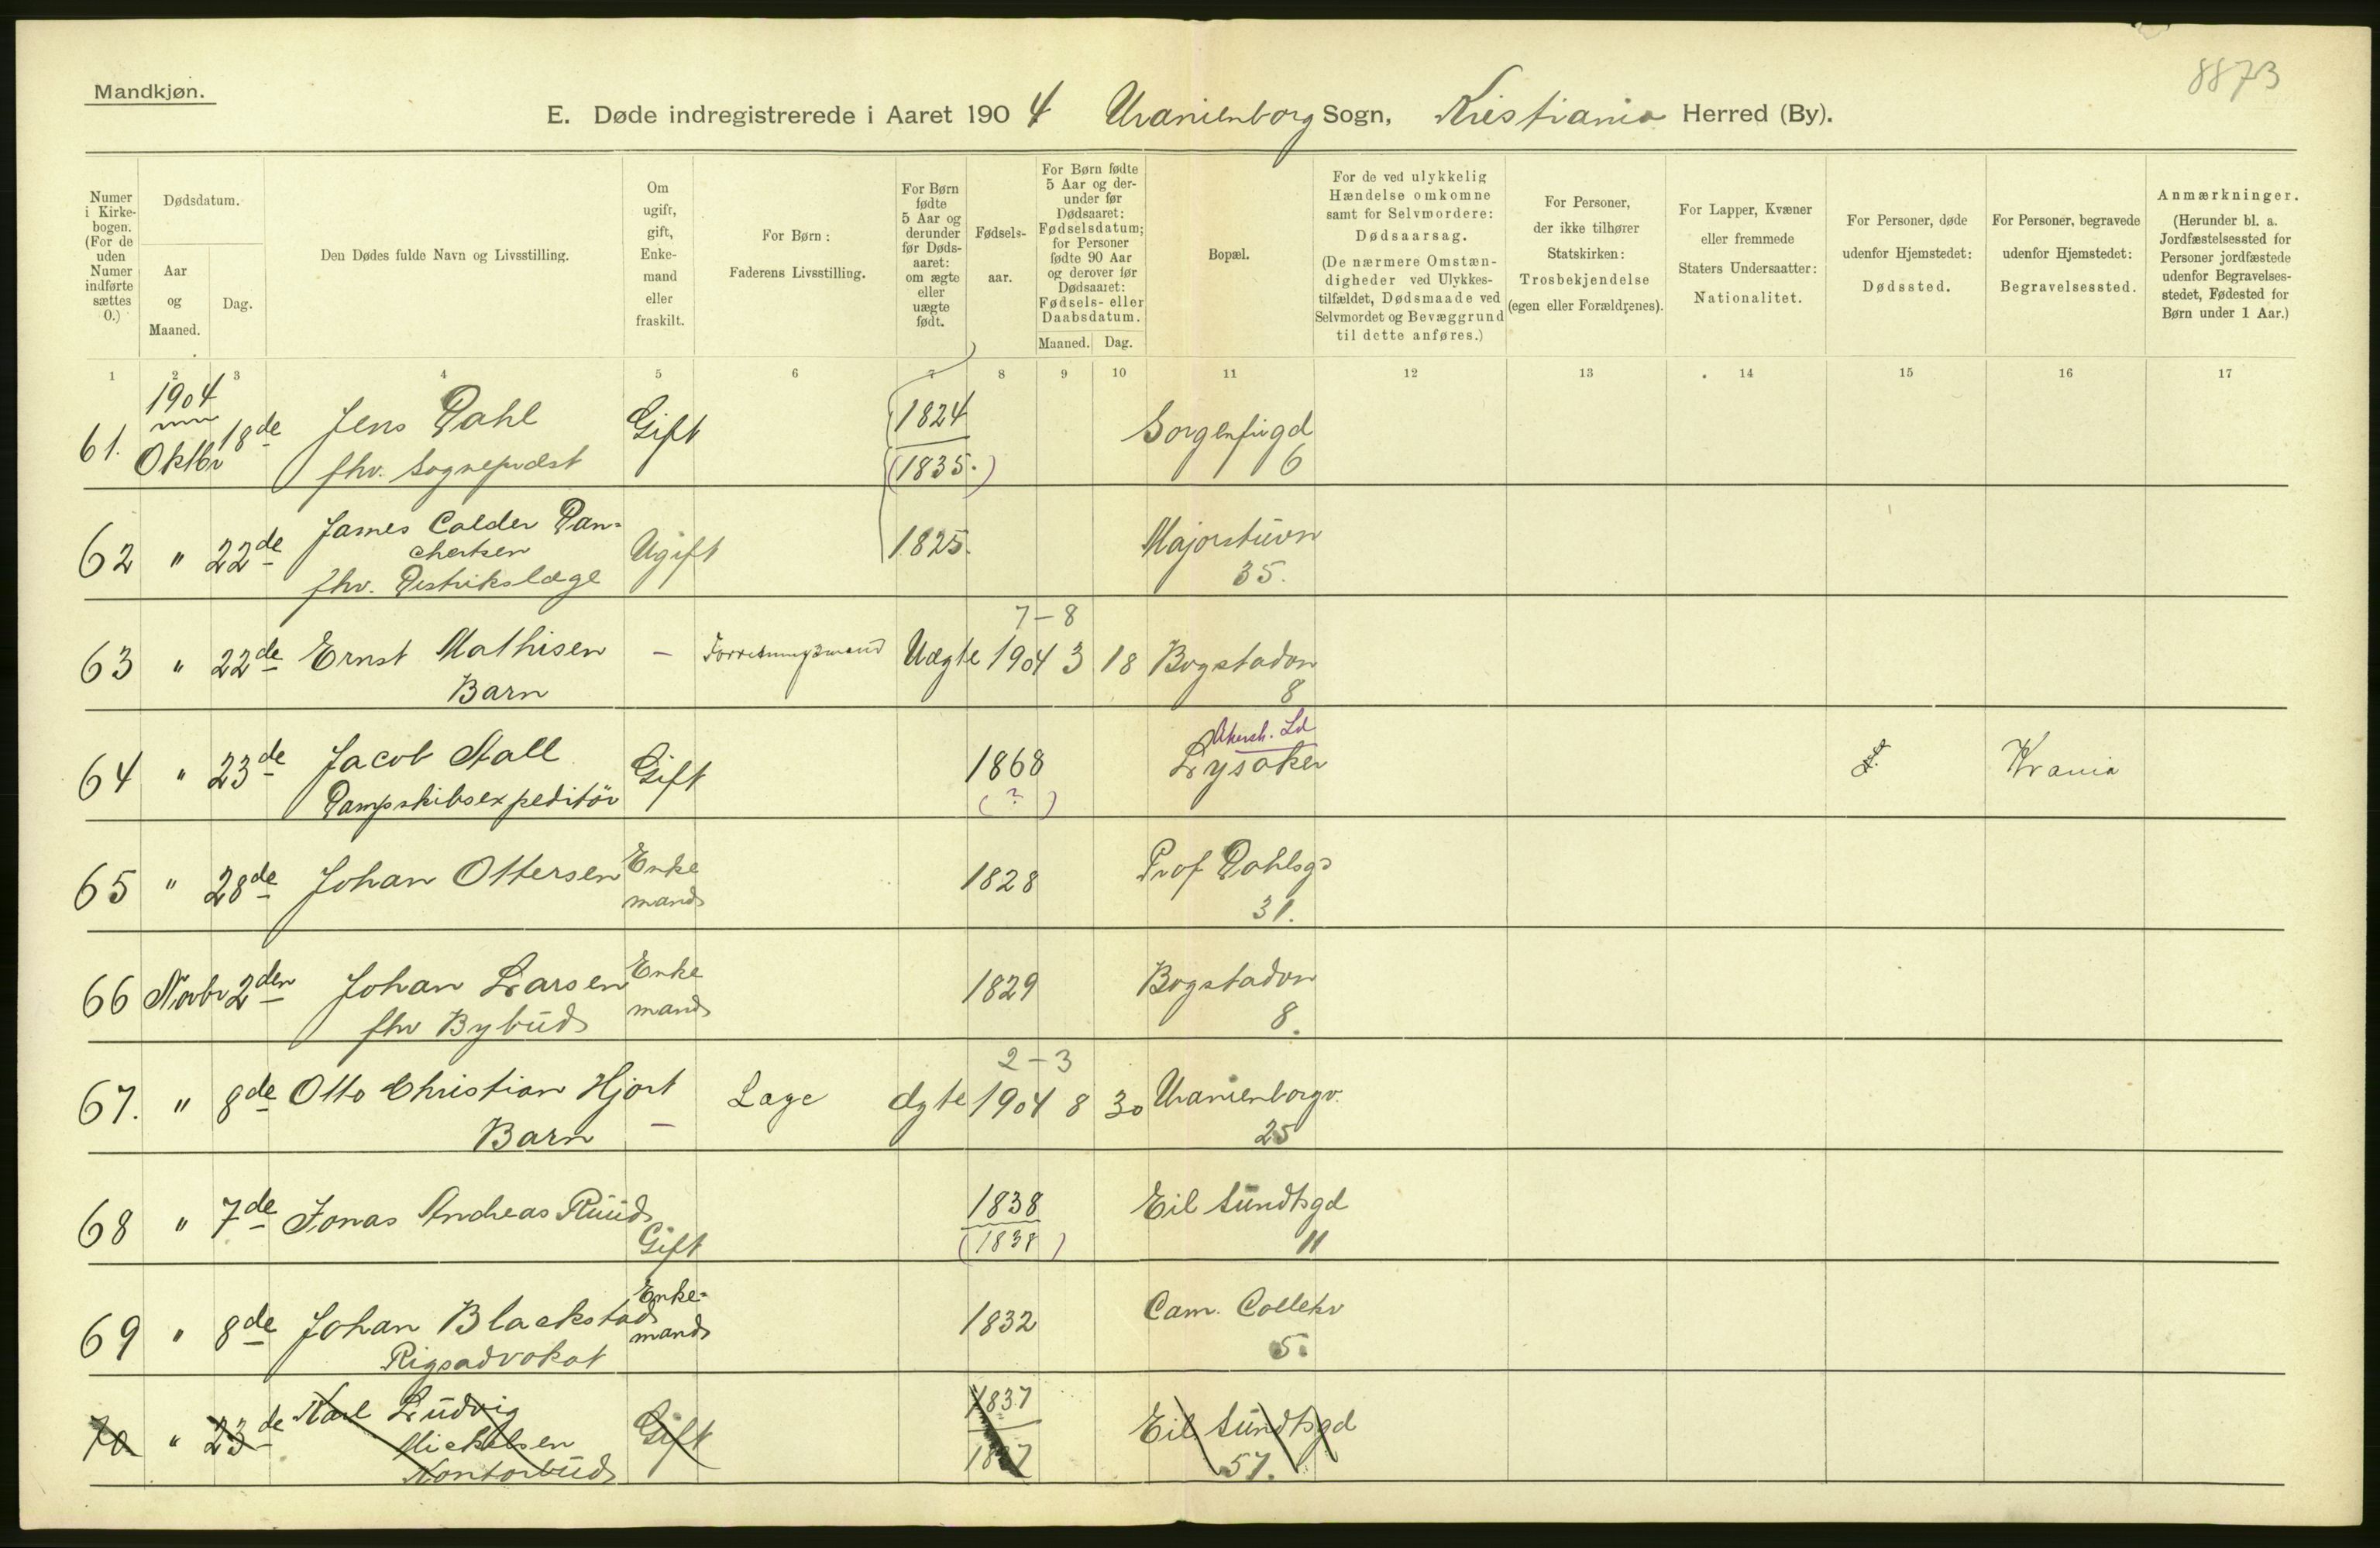 8873
Mandkjøn.
E. Døde indregistrerede i Aaret 1904 Uranienborg Sogn, Kristiania Herred (By).
Numer i Kirke- bogen. (For de uden Numer indførte sættes 0.)
Dødsdatum.
Aar og Maaned.
Dag.
Den Dødes fulde Navn og Livsstilling.
Om ugift, gift, Enke- mand eller fraskilt.
For Børn: Faderens Livsstilling.
For Børn fødte 5 Aar og derunder før Døds- aaret: om ægte eller uægte født.
Fødsels- aar.
For Børn fødte 5 Aar og der- under før Dødsaaret: Fødselsdatum; for Personer fødte 90 Aar og derover før Dødsaaret: Fødsels- eller Daabsdatum.
Maaned. Dag.
Bopæl.
For de ved ulykkelig Hændelse omkomne samt for Selvmordere: Dødsaarsag. (De nærmere Omstæn- digheder ved Ulykkes- tilfældet, Dødsmaade ved Selvmordet og Bevæggrund til dette anføres.)
For Personer, der ikke tilhører Statskirken: Trosbekjendelse (egen eller Forældrenes).
For Lapper, Kvæner eller fremmede Staters Undersaatter: Nationalitet.
For Personer, døde udenfor Hjemstedet: Dødssted.
For Personer, begravede udenfor Hjemstedet: Begravelsessted.
Anmærkninger. (Herunder bl. a. Jordfæstelsessted for Personer jordfæstede udenfor Begravelses- stedet, Fødested for Børn under 1 Aar.)
1 2 3 4 5 6 7 8 9 10 11 12 13 14 15 16 17
1904
61. Oktbr 18de Jens Dahl Gift 1824 Sorgenfrigd
fhv. Sogneprest (1835.) 6
62 " 22de James Calder Dan-
chertsen Ugift 1825. Majorstuvn
fhv. Distrikslæge 35.
7-8
63 " 22de Ernst Mathisen - Forretningsmand Uægte 1904 3 18 Bogstadvn
Barn 8
Akersh. Ld
64 " 23de Jacob Stall Gift 1868 Lysaker Krania
Dampskibsexpeditør (?)
65 " 28de Johan Ottersen Enke 1828 Prof Dahlsgd
mand 31.
66 Novbr 2den Johan Larsen Enke 1829 Bogstadvn
fhv Bybud mand 8.
2-3
67. " 8de Otto Christian Hjort Læge ægte 1904 8 30 Uranienborgv.
Barn - 25
68 " 7de Jonas Andreas Ruud 1838 Eil Sundtsgd
Gift (1838) 11
69 " 8de Johan Blackstad Enke- 1832 Cam. Colletsv
Rigsadvokat mand 5.
70 " 23de Karl Ludvig Gift 1837 Eil Sundtsgd
Mickelsen
Kontorbud 57.